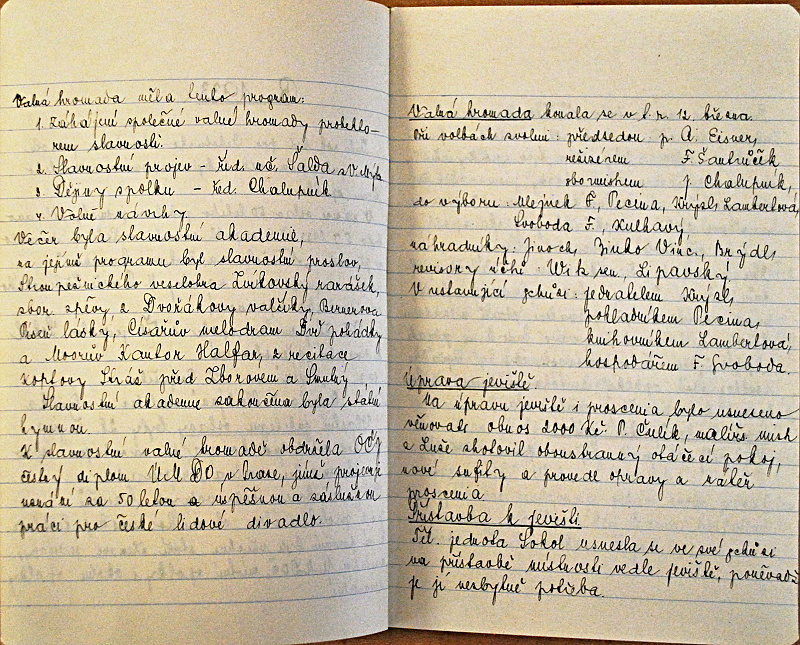 Valná hromada měla tento program:
1. Zahájení společné valné hromady probéhlo-
rem slavnosti.
2. Slavnostní projev - řed. uč. Šalda z V. Mýta
3. Dějiny spolku - řed. Chalupník
4. Volné návrhy
Večer byla slavnostní akademie,
na jejímž programu byl slavnostní proslov,
Stroupežnického veselohra Zvíkovský rarášek,
sbor zpěvy z Dvořákovy valčíky, Bernerova
Píseň lásky, Císařův melodram Dvě pohádky
a Moorův Kantor Halfar, z recitace
Koptovy Stráž před Zborovem a Smutný
Slavnostní akademie zakončena byla státní
hymnou.
K slavnostní valné hromadě obdržela OČJ
čestný diplom ÚMDO v Praze, jímž projevuje
uznání za 50 letou a úspěšnou a záslužnou
práci pro české lidové divadlo.
Valná hromada konala se v t. r. 12. března.
Při volbách zvoleni: předsedou p. A. Eisner,
režisérem F. Šantrůček
sbormistrem J. Chalupník,
do výboru: Mlejnek F., Pecina, Krýzl, Lambertová,
Svoboda F., Kulhavý,
náhradníky: Jinoch, Zinko Vinc., Brýdl,
revisory účtů: Wik sen., Lipavský
V ustavující schůzi: jednatelem Krýzl,
pokladníkem Pecina,
knihovníkem Lambertová,
hospodářem F. Svoboda.
Úprava jeviště.
Na úpravu jeviště i proscenia bylo usneseno
věnovati obnos 2000 Kč. P. Čulík, malíř. mistr
z Luže zhotovil oboustranný otáčecí pokoj,
nové sufity a provede opravy a nátěr
proscenia.
Přístavba k jevišti
Těl. jednota Sokol usnesla se ve své schůzi
na přístavbě místnosti vedle jeviště, poněvadž
je jí nezbytně potřeba.